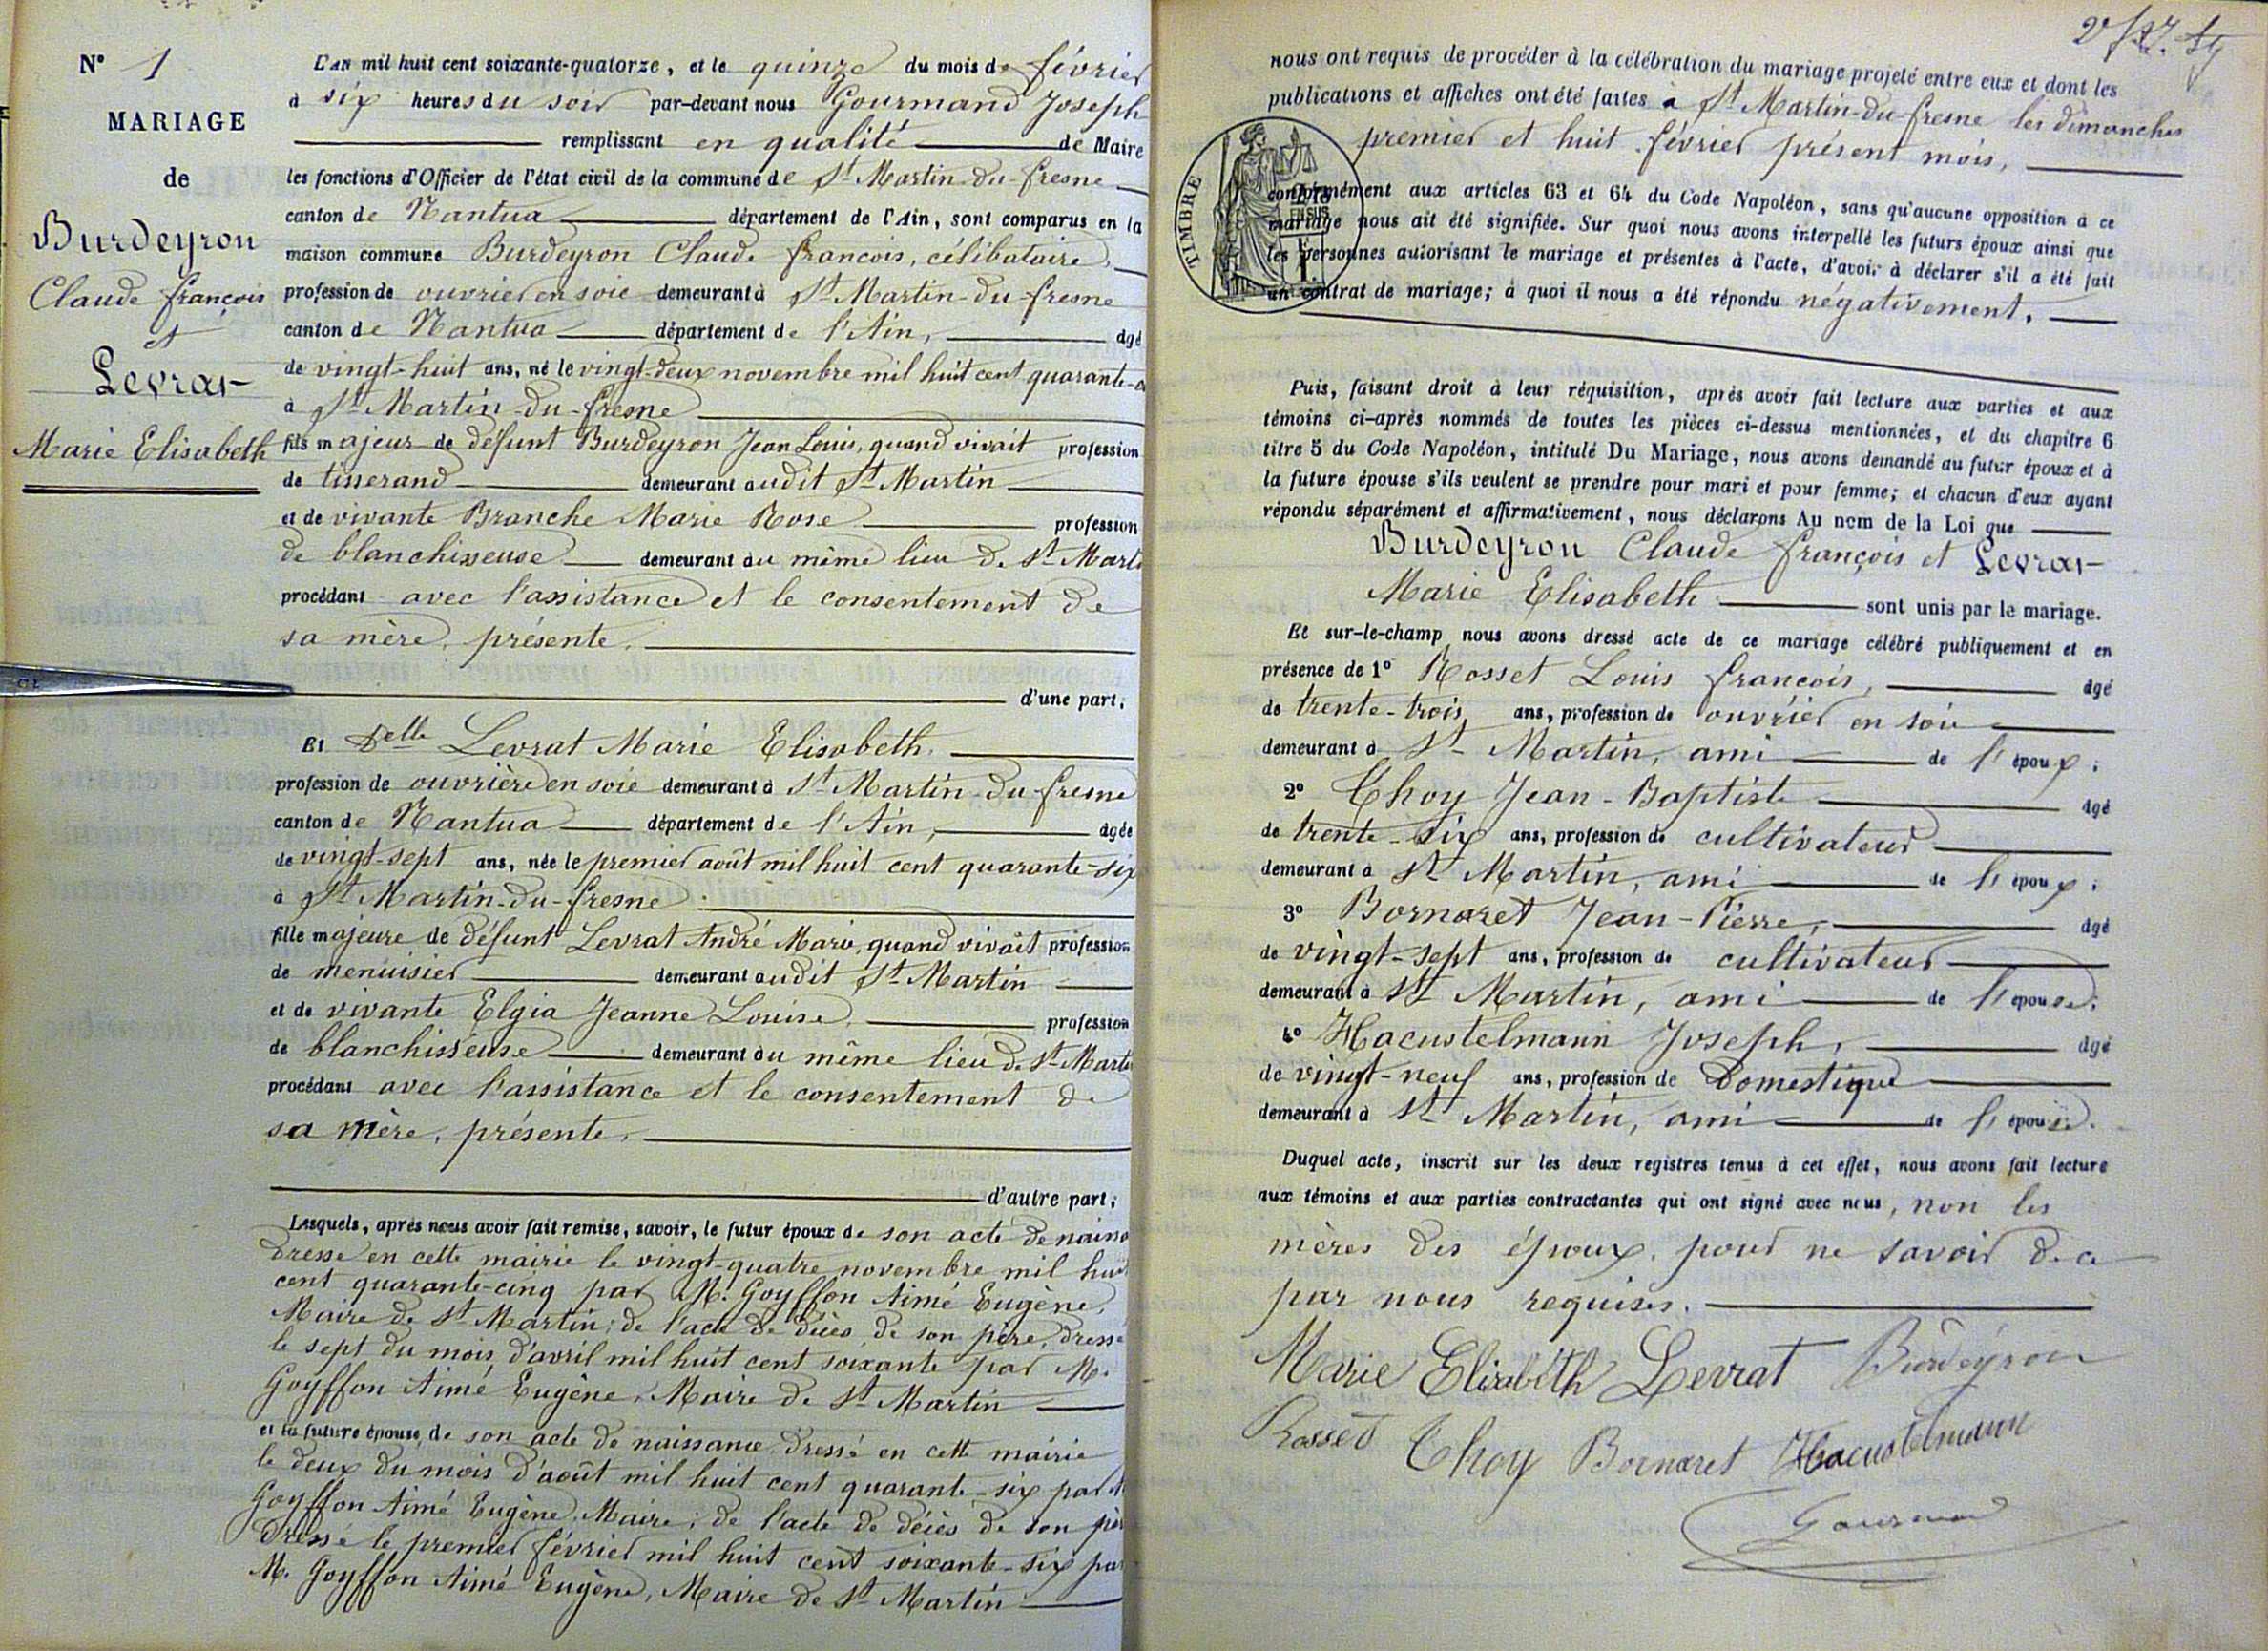 N° 1
MARIAGE
de
Burdeyron
Claude françois
et
Levrat
Marie Elisabeth
L'an mil huit cent soixante-quatorze, et le quinze du mois de février
à six heures du soir par-devant nous Gourmand Joseph
remplissant en qualité de Maire
les fonctions d'Officier de l'état civil de la commune de St Martin-du-fresne
canton de Nantua département de l'Ain, sont comparus en la
maison commune Burdeyron Claude francois, célibataire,
profession de ouvrier en soie demeurant à St Martin-du-fresne
canton de Nantua département de l'Ain, âgé
de vingt-huit ans, né le vingt-deux novembre mil huit cent quarante-c
à St Martin-du-fresne
fils majeur de défunt Burdeyron Jean Louis, quand vivait profession
de tisserand demeurant audit St Martin
et de vivante Branche Marie Rose profession
de blanchisseuse demeurant au même lieu de St Marti
procédant avec l'assistance et le consentement de
sa mère, présente,
d'une part;
Et Delle Levrat Marie Elisabeth,
profession de ouvrière en soie demeurant à St Martin-du-fresne
canton de Nantua département de l'Ain, âgée
de vingt-sept ans, née le premier août mil huit cent quarante-six
à St Martin-du-fresne
fille majeure de défunt Levrat André Marie, quand vivait profession
de menuisier demeurant audit St Martin
et de vivante Elgia Jeanne Louise, profession
de blanchisseuse demeurant au même lieu de St Marti
procédant avec l'assistance et le consentement de
sa mère, présente,
d'autre part;
Lesquels, après nous avoir fait remise, savoir, le futur époux de son acte de naiss
dressé en cette mairie le vingt-quatre novembre mil huit
cent quarante-cinq par M. Goyffon Aimé Eugène,
Maire de St Martin; de l'acte de décès de son père, dressé
le sept du mois d'avril mil huit cent soixante par M.
Goyffon Aimé Eugène, Maire de St Martin
et la future épouse, de son acte de naissance dressé en cette mairie
le deux du mois d'août mil huit cent quarante-six par M
Goyffon Aimé Eugène, Maire; de l'acte de décès de son pèr
dressé le premier février mil huit cent soixante-six par
M. Goyffon Aimé Eugène, Maire de St Martin
nous ont requis de procéder à la célébration du mariage projeté entre eux et dont les
publications et affiches ont été faites à St Martin-du-fresne les dimanches
premier et huit février présent mois,
TIMBRE
conformément aux articles 63 et 64 du Code Napoléon, sans qu'aucune opposition à ce
mariage nous ait été signifiée. Sur quoi nous avons interpellé les futurs époux ainsi que
les personnes autorisant le mariage et présentes à l'acte, d'avoir à déclarer s'il a été fait
un contrat de mariage; à quoi il nous a été répondu négativement.
Puis, faisant droit à leur réquisition, après avoir fait lecture aux parties et aux
témoins ci-après nommés de toutes les pièces ci-dessus mentionnées, et du chapitre 6
titre 5 du Code Napoléon, intitulé Du Mariage, nous avons demandé au futur époux et à
la future épouse s'ils veulent se prendre pour mari et pour femme; et chacun d'eux ayant
répondu séparément et affirmativement, nous déclarons Au nom de la Loi que
Burdeyron Claude françois et Levrat
Marie Elisabeth sont unis par le mariage.
Et sur-le-champ nous avons dressé acte de ce mariage célébré publiquement et en
présence de 1° Rosset Louis francois, âgé
de trente-trois ans, profession de ouvrier en soie
demeurant à St Martin, ami de l'époux;
2° Choy Jean-Baptiste âgé
de trente-six ans, profession de cultivateur
demeurant à St Martin, ami de l'époux;
3° Bornaret Jean-Pierre, âgé
de vingt-sept ans, profession de cultivateur
demeurant à St Martin, ami de l'épouse;
4° Hacustelmann Joseph, âgé
de vingt-neuf ans, profession de domestique
demeurant à St Martin, ami de l'épouse.
Duquel acte, inscrit sur les deux registres tenus à cet effet, nous avons fait lecture
aux témoins et aux parties contractantes qui ont signé avec nous, non les
mères des époux, pour ne savoir de ce
par nous requises.
Marie Elisabeth Levrat Burdeyron
Rosset Choy Bornaret Hacustelmann
Gourmand